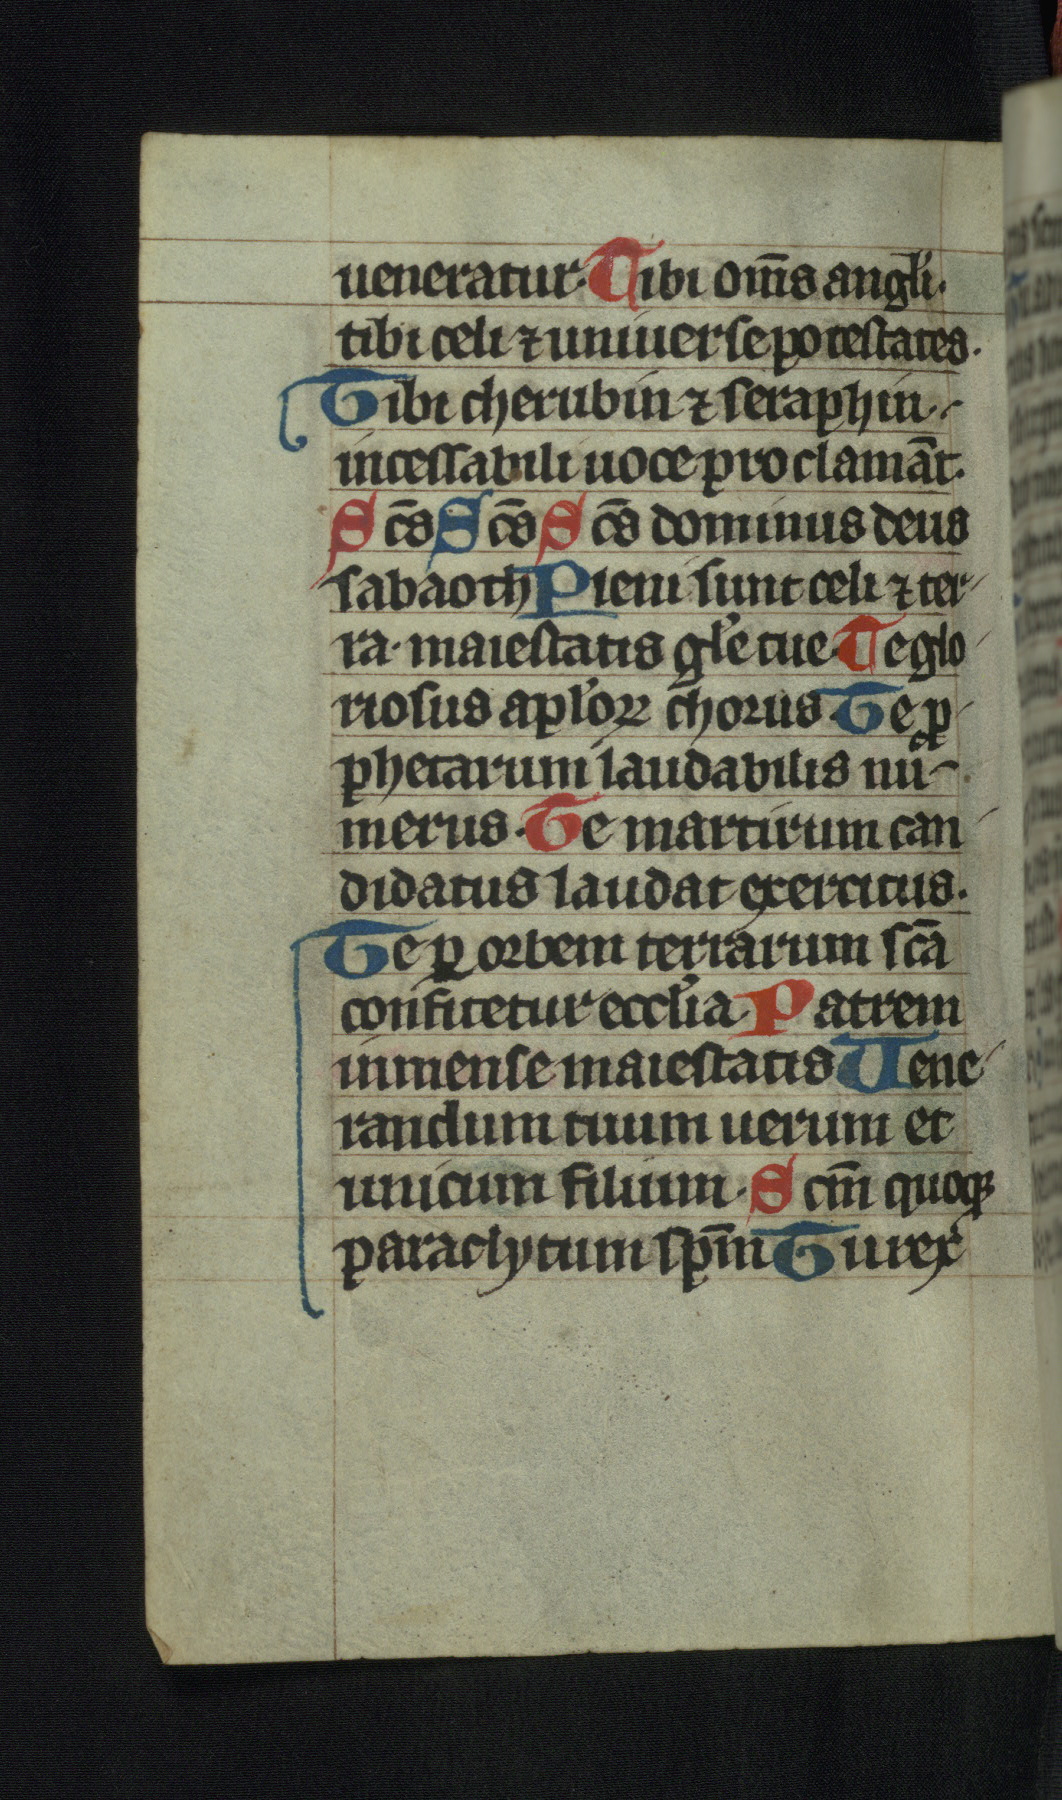 ueneratur. Tibi om̄s angl̓i.
tibi celi ⁊ uniuerse potestates.
Tibi cherubin ⁊ seraphin
incessabili uoce proclamāt.
Sc̄s Sc̄s Sc̄s dominus deus
sabaoth Pleni sunt celi ⁊ ter
ra. maiestatis gl̓e tue. Te glo
riosus apl̓oꝝ chorus. Te ꝓ
phetarum laudabilis nu
merus. Te martirum can
didatus laudat exercitus.
Te ꝑ orbem terrarum scā
confitetur eccl̓ia. Patrem
inmense maiestatis Uene
randum tuum uerum et
unicum filium. Scm̄ quoqꝫ
paraclytum sp̄m Tu rex